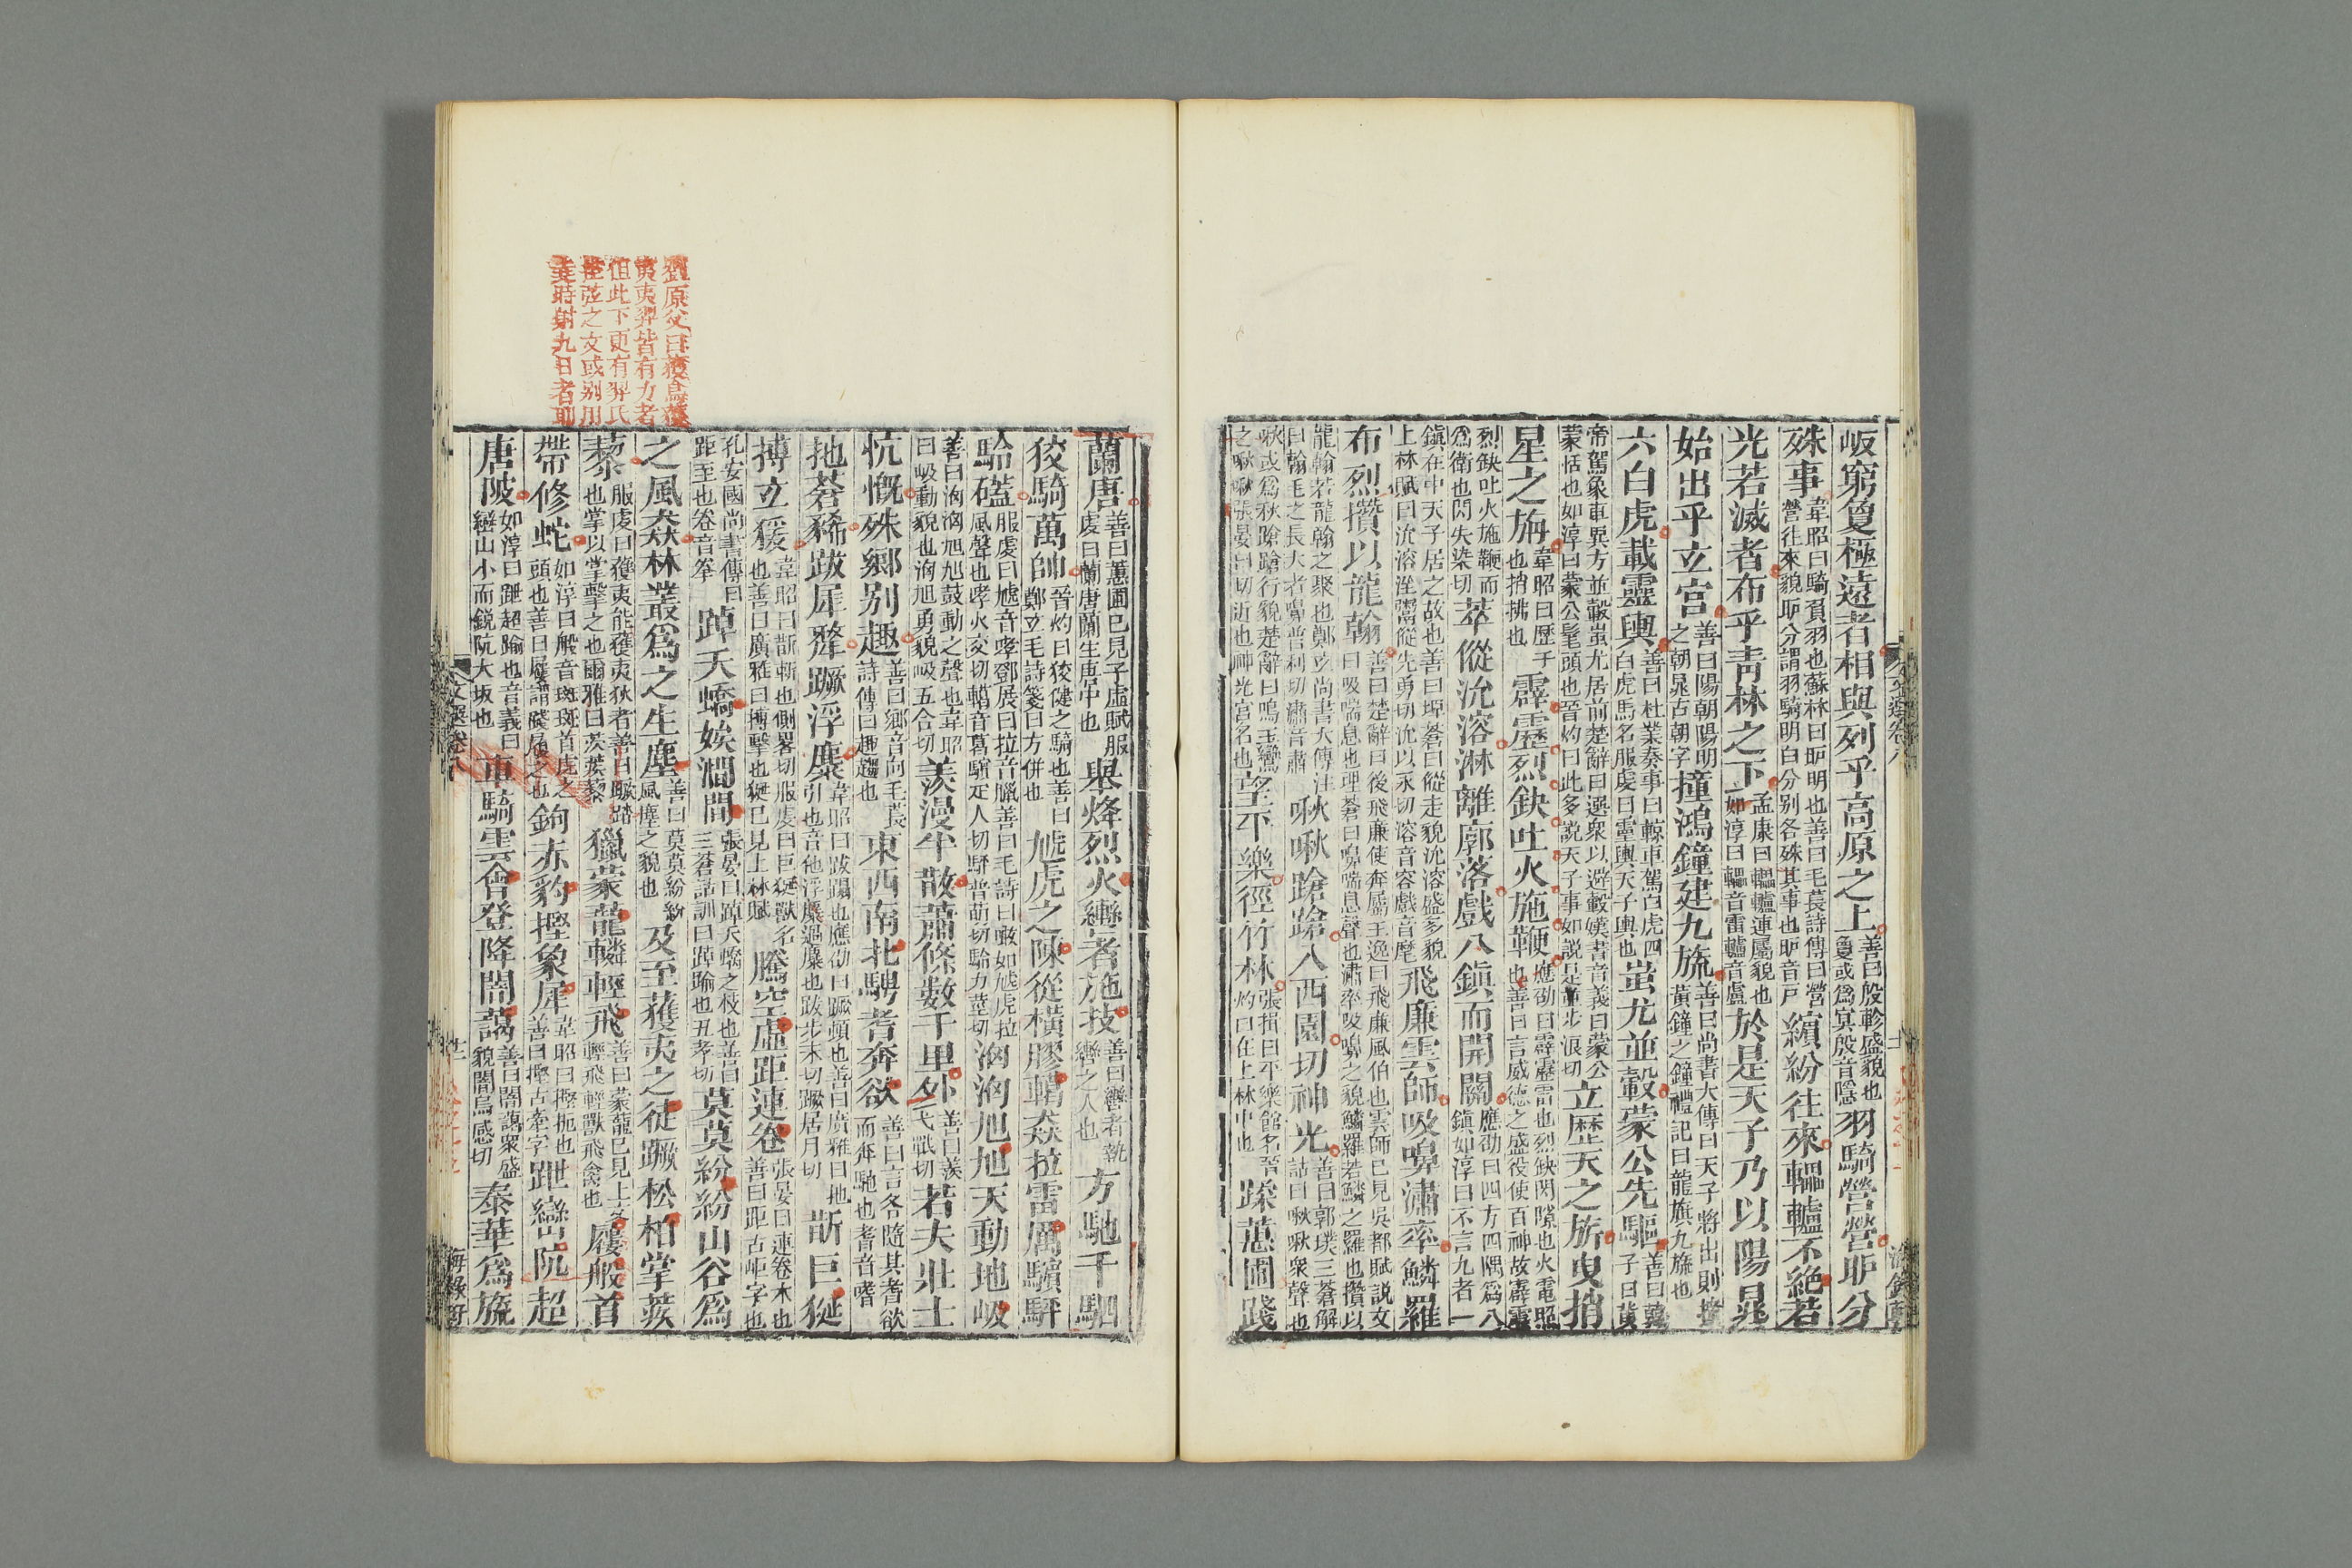 岋窮敻極遠者相與列乎高原之上善曰殷軫盛貌也敻或爲寘殷音隱羽騎營營昈分
殊事韋昭曰騎負羽也蘇林曰昈明也善曰毛萇詩傳曰營營往來貌昈分謂羽騎明白分別各殊其事也昈音戸繽紛往來轠轤不絶若
光若滅者布乎青林之下孟康曰轠轤連屬貌也如淳曰轠音雷轤音盧於是天子乃以陽晁
始出乎玄宮善曰陽朝陽明之朝晁古朝字撞鴻鐘建九旒善曰尚書大傳曰天子將出則撞黃鐘之鐘禮記曰龍旗九旒也
六白虎載靈輿善曰杜業奏事曰輬車駕白虎四白虎馬名服虔曰靈輿天子輿也蚩尤並轂蒙公先驅善曰韓子曰黃
帝駕象車異方並轂蚩尤居前楚辭曰選衆以並轂漢書音義曰蒙公蒙恬也如淳曰蒙公髦頭也晉灼曰此多說天子事如說是並步浪切立歷天之旂曳捎
星之旃韋昭曰歷干也捎拂也霹靂烈缺吐火施鞭應劭曰霹靂雷也烈缺閃隙也火電照也善曰言威德之盛役使百神故霹靂
烈缺吐火施鞭而爲衛也閃失染切萃傱沇溶淋離廓落戲八鎭而開關應劭曰四方四隅爲八鎭如淳曰不言九者一
鎭在中天子居之故也善曰埤蒼曰傱走貌沇溶盛多貌上林賦曰沇溶淫鬻傱先勇切沇以永切溶音容戲音麾飛廉雲師吸嚊潚率鱗羅
布烈攢以龍翰善曰楚辭曰後飛廉使奔屬王逸曰飛廉風伯也雲師已見吳都賦說文曰吸喘息也埤蒼曰嚊喘息聲也潚率吸嚊之貌鱗羅若鱗之羅也攢以
龍翰若龍翰之聚也鄭玄尚書大傳注曰翰毛之長大者嚊普利切潚音肅啾啾蹌蹌入西園切神光善曰郭璞三蒼解詁曰啾啾衆聲也
啾或爲秋蹌蹌行貌楚辭曰鳴玉鸞之啾啾張晏曰切近也神光宮名也望平樂徑竹林張揖曰平樂館名晉灼曰在上林中也蹂蕙圃踐
蘭唐善曰蕙圃已見子虛賦服虔曰蘭唐蘭生唐中也舉烽烈火轡者施技善曰轡者執轡之人也方馳千駟
狡騎萬帥晉灼曰狡健之騎也善曰鄭玄毛詩箋曰方併也虓虎之陳從橫膠轕猋拉雷厲驞駍
駖磕服虔曰虓音哮鄧展曰拉音臘善曰毛詩曰闞如虓虎拉風聲也哮火交切轕音葛驞疋人切駍普萌切駖力莖切洶洶旭旭天動地岋
善曰洶洶旭旭鼓動之聲也韋昭曰岋動貌也洶旭勇貌岋五合切羨漫半散蕭條數千里外善曰羨弋戰切若夫壯士
忼慨殊鄉別趣善曰鄉音向毛萇詩傳曰趣趨也東西南北騁耆奔欲善曰言各隨其耆欲而奔馳也耆音嗜
拖蒼豨跋犀犛蹶浮麋韋昭曰跋躐也應劭曰蹶頓也善曰廣雅曰拖引也音他浮麋過麋也跋步末切蹶居月切斮巨狿
搏玄猨韋昭曰斮斬也側畧切服虔曰巨狿獸名也善曰廣雅曰搏擊也狿已見上林賦騰空虛距連卷張晏曰連卷木也善曰距古岠字也
孔安國尚書傳曰距至也卷音拳踔夭蟜娭澗間張晏曰踔夭蟜之枝也善曰三蒼詁訓曰踔踰也丑孝切莫莫紛紛山谷爲
之風猋林叢爲之生塵善曰莫莫紛紛風塵之貌也及至獲夷之徒蹶松柏掌蒺
藜服虔曰獲夷能獲夷狄者善曰蹶踏也掌以掌擊之也爾雅曰茨蒺藜獵蒙蘢轔輕飛善曰蒙蘢已見上文輕飛輕獸飛禽也履般首
帶修蛇如淳曰般音班班首虎之頭也善曰履謂踐履之也鉤赤豹摼象犀韋昭曰摼扼也善曰摼古牽字跇巒阬超
唐陂如淳曰跇超踰也音義曰巒山小而銳阬大坂也車騎雲會登降闇藹善曰闇藹衆盛貌闇烏感切泰華爲旒
劉原父曰獲烏獲
夷夷羿皆有力者
但此下更有羿氏
控弦之文或別用
堯時射九日者耶
文選卷八